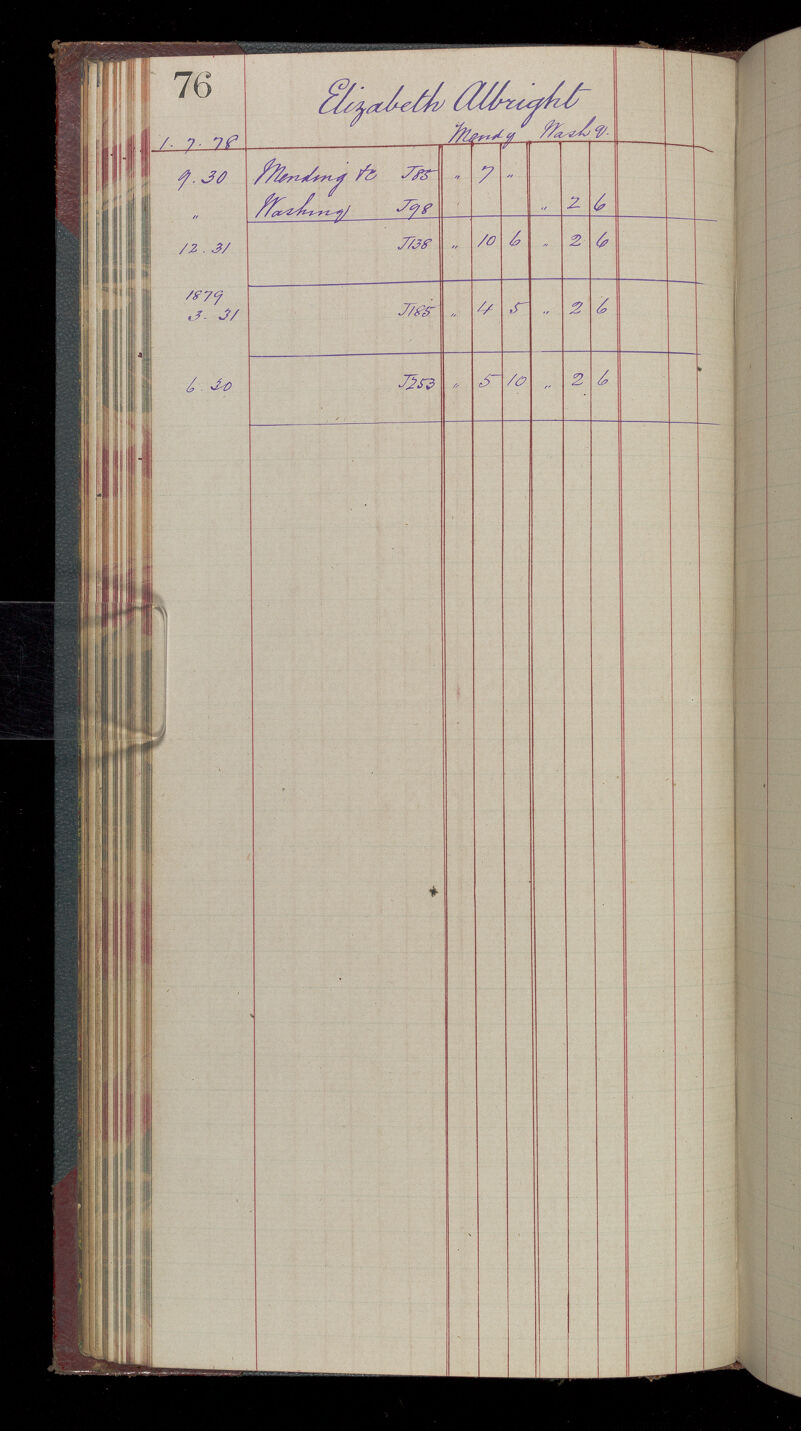 76
Elizabeth Albright
1. 7. 78 Mendg Washg.
9. 30 Mending &c J85 " 7 "
" Washing J98 " 2 6
12. 31 J138 " 10 6 " 2 6
1879
3. 31 J185 " 4 5 " 2 6
6. 30 J253 " 5 10 " 2 6